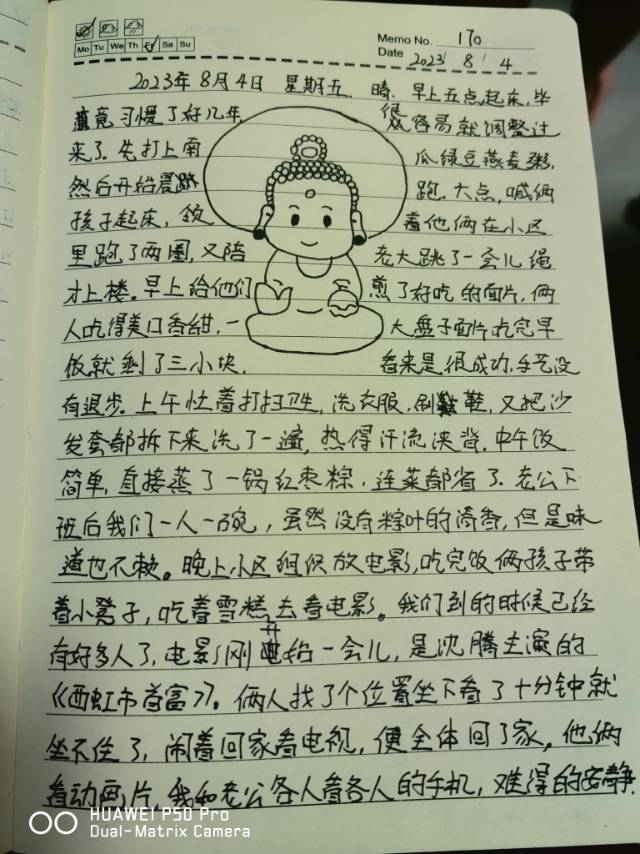 Mo Tu We Th Fr Sa Su
Memo No. 170
Date 2023 / 8 / 4
2023年8月4日 星期五. 晴. 早上五点起床, 毕
竟习惯了好几年, 很容易就调整过
来了. 先打上南 瓜绿豆燕麦粥,
然后开始晨跑 跑. 大点, 喊俩
孩子起床, 领 着他俩在小区
里跑了两圈, 又陪 老大跳了一会儿绳
才上楼. 早上给他们 煎了好吃的面片, 俩
人吃得美口香甜. 一 大盘子面片吃完早
饭就剩了三小块. 看来是很成功, 手艺没
有退步. 上午忙着打扫卫生, 洗衣服. 刷鞋, 又把沙
发套都拆下来洗了一遍, 热得汗流浃背. 中午饭
简单, 直接蒸了一锅红枣粽, 连菜都省了. 老公下
班后我们一人一碗, 虽然没有粽叶的清香, 但是味
道也不赖。晚上小区组织放电影, 吃完饭俩孩子带
着小凳子, 吃着雪糕去看电影。我们到的时候已经
有好多人了, 电影刚开始一会儿, 是沈腾主演的
《西虹市首富》。俩人找了个位置坐下看了十分钟就
坐不住了, 闹着回家看电视, 便全体回了家。他俩
看动画片, 我和老公各人看各人的手机, 难得的安静.
HUAWEI P50 Pro
Dual-Matrix Camera